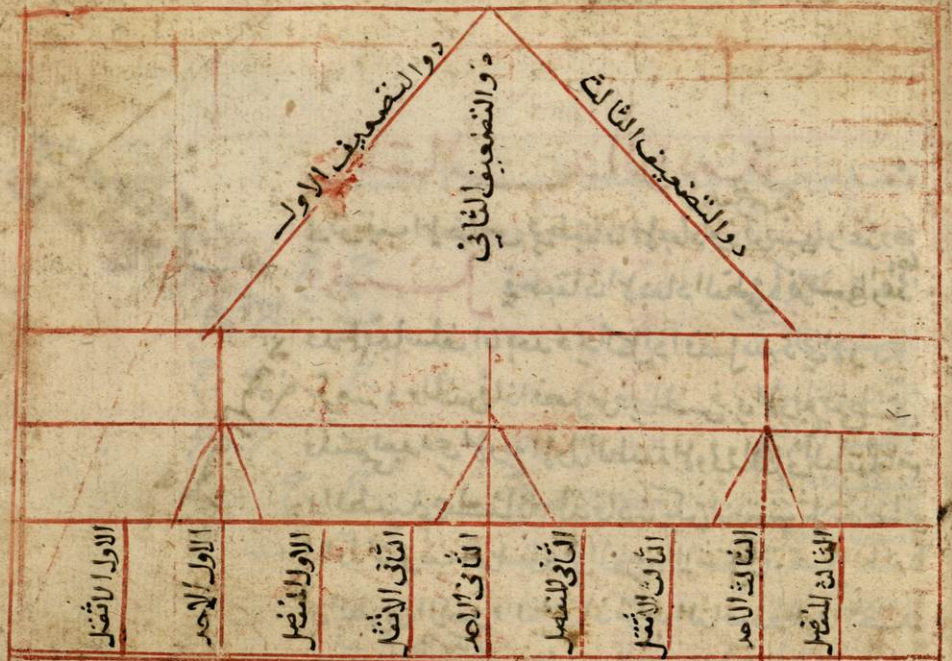 ذو التضعيف الثالث
ذو التضعيف الثاني
ذو التضعيف الاول
الثالث المنفصل
الثالث الاحد
الثالث الاثقل
الثاني المنفصل
الثاني الاحد
الثاني الاثقل
الاول المنفصل
الاول الاحد
الاول الاثقل